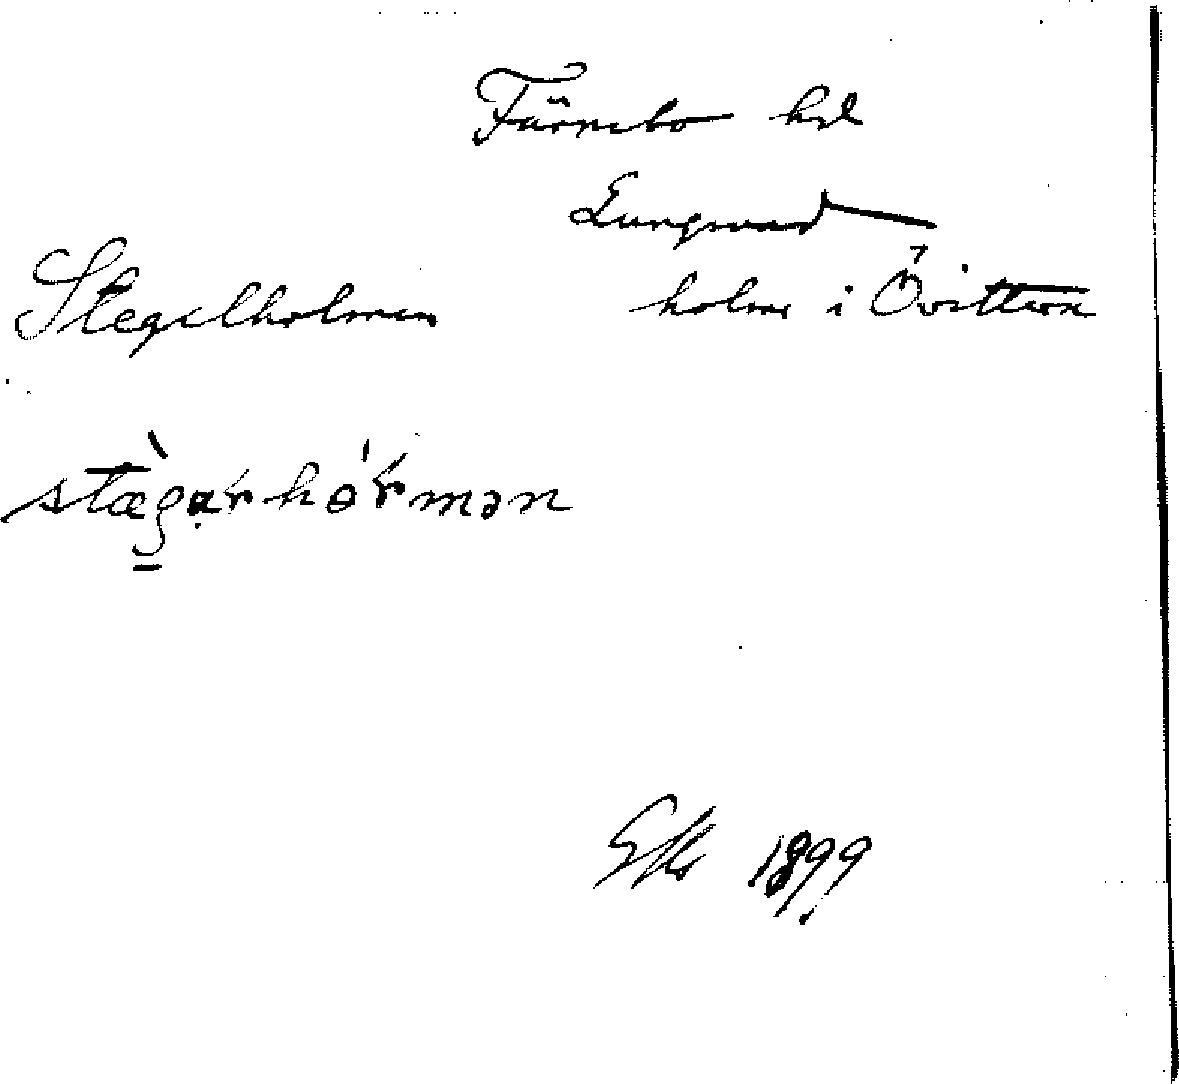 Färnebo hd
Lungsund
Stegelholmen holme i Övittern
stægarhormən
1899